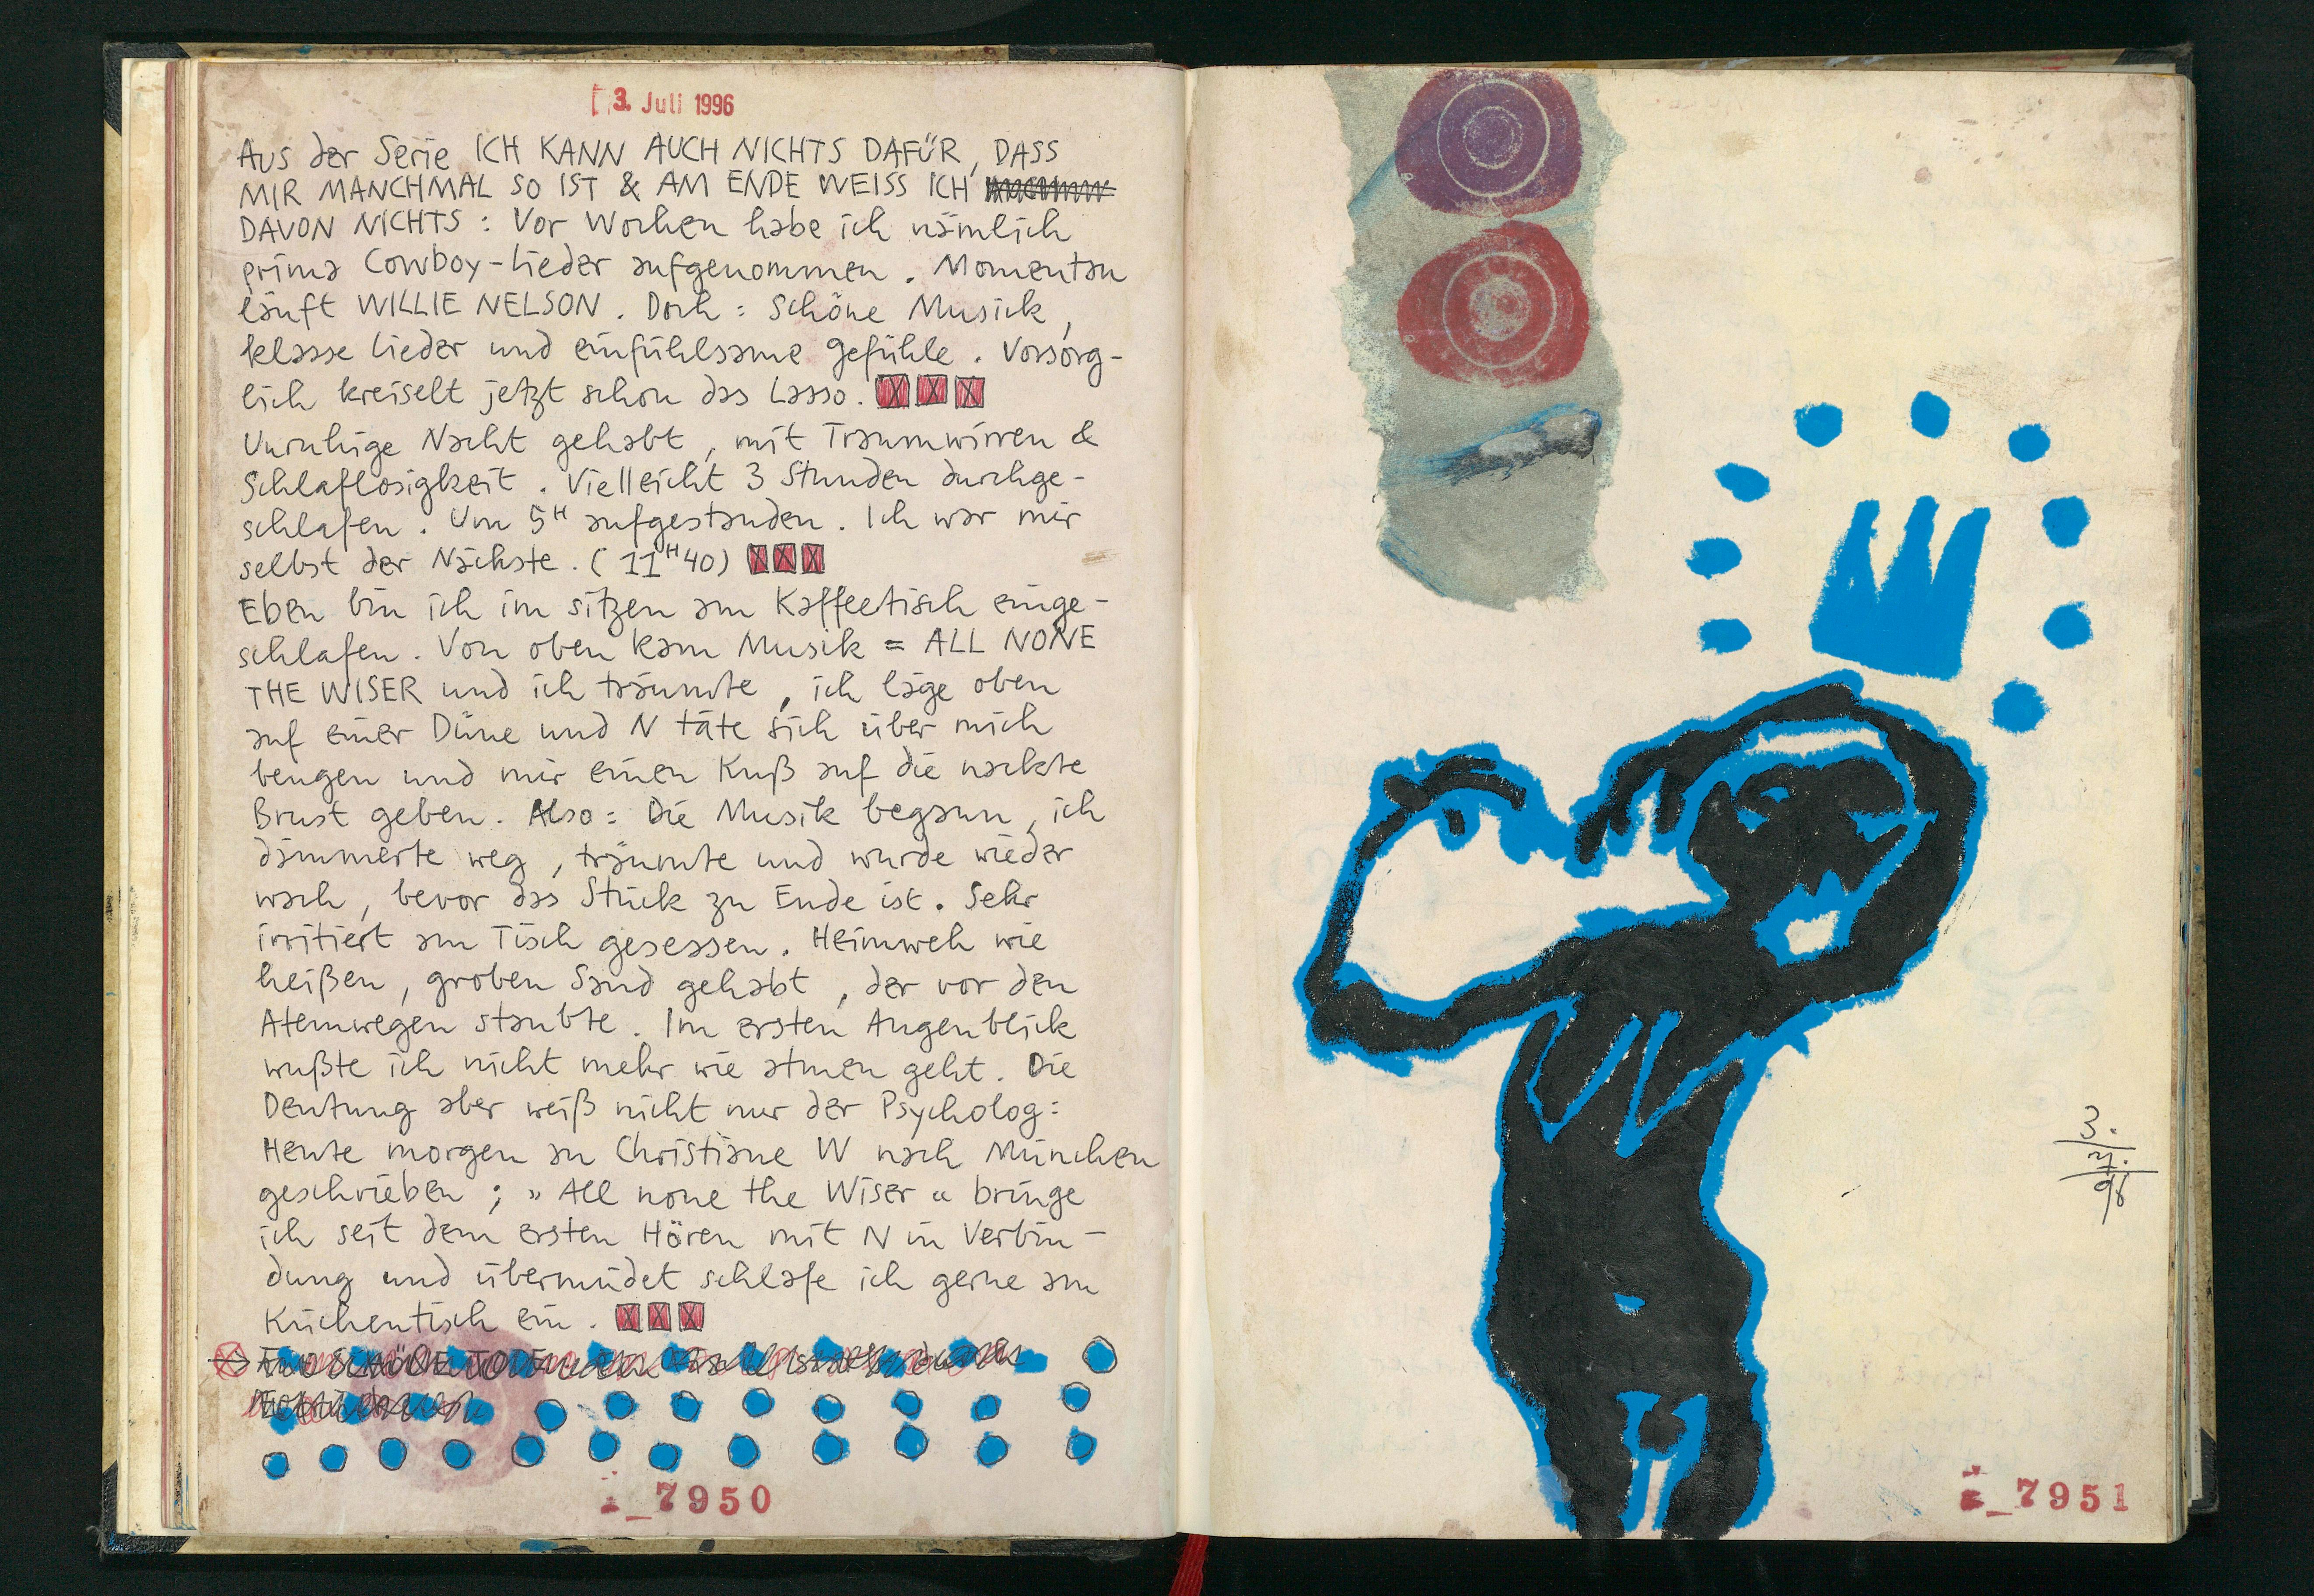 3. Juli 1996
Aus der Serie ICH KANN AUCH NICHTS DAFÜR, DASS
MIR MANCHMAL SO IST & AM ENDE WEISS ICH
DAVON NICHTS : Vor Wochen habe ich nämlich
prima Cowboy-Lieder aufgenommen. Momentan
läuft WILLIE NELSON. Doch: Schöne Musick,
klasse Lieder und einfühlsame Gefühle. Vorsorg-
lich kreiselt jetzt schon das Lasso.
Unruhige Nacht gehabt, mit Traumwirren &
Schlaflosigkeit. Vielleicht 3 Stunden durchge-
schlafen. Um 5H aufgestanden. Ich war mir
selbst der Nächste. (11H40)
Eben bin ich im sitzen am Kaffeetisch einge-
schlafen. Von oben kam Musik = ALL NONE
THE WISER und ich träumte, ich läge oben
auf einer Düne und N täte sich über mich
beugen und mir einen Kuß auf die nackte
Brust geben. Also: Die Musik begann, ich
dämmerte weg, träumte und wurde wieder
wach, bevor das Stück zu Ende ist. Sehr
irritiert am Tisch gesessen. Heimweh wie
heißen, groben Sand gehabt, der vor den
Atemwegen staubte. Im ersten Augenblick
wußte ich nicht mehr wie atmen geht. Die
Deutung aber weiß nicht nur der Psycholog:
Heute morgen an Christiane W nach München
geschrieben; "All none the Wiser" bringe
ich seit dem ersten Hören mit N in Verbin-
dung und übermüdet schlafe ich gerne am
Küchentisch ein.
7950
3.
7.
96
7951